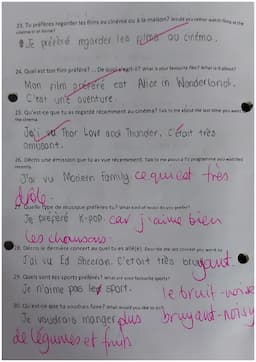 23. Tu préfères regarder les films au cinéma ou à la maison? Would you rather watch films at the
cinema or at home?
Je préféré regarder les films au cinéma.
24. Quel est ton film préféré? ... De quoi s'agit-il? What is your favourite film? What is it about?
Mon film préféré est Alice in Wonderland.
C'était une aventure.
25. Qu'est-ce que tu as regardé récemment au cinéma? Talk to me about the last time you went to
the cinema.
J'ai vu Thor Love and Thunder, C'était très
amusant.
26. Décris une émission que tu as vue récemment. Talk to me about a TV programme you watched
recently.
J'ai vu Modern Family ce qui est très
drôle.
27. Quelle type de musique préfères tu? What kind of music do you prefer?
Je préféré K-pop. car j'aime bien
les chansons.
28. Décris le dernier concert auquel tu es allé(e). Describe the last concert you went to
J'ai vu Ed Sheeran. C'était très bruyant.
29. Quels sont tes sports préférés? What are your favourite sports?
Je n'aime pas les sport. le bruit-noise
30. Qu'est-ce que tu voudrais faire? What would you like to do?
Je voudrais manger plus bruyant-noisy
de légumes et fruits